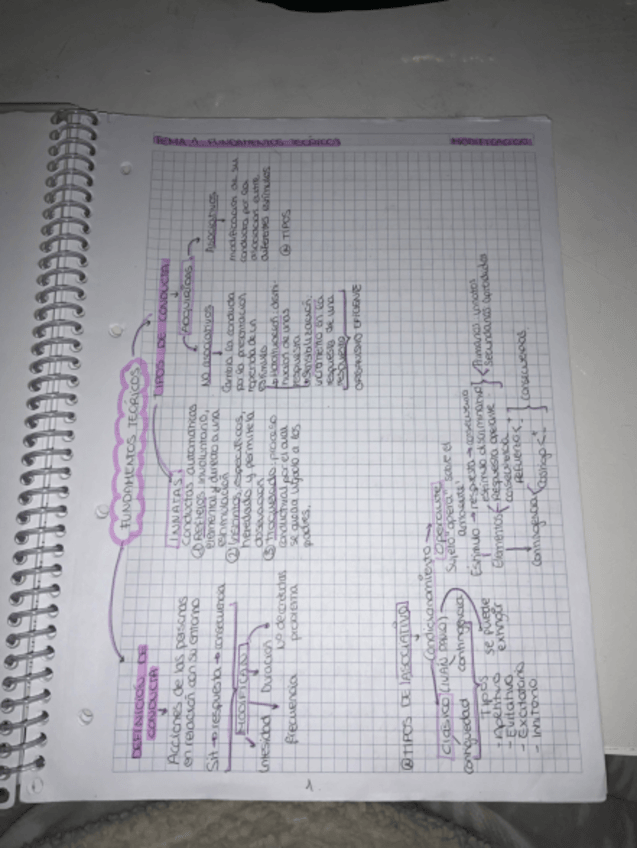 TEMA 1. FUNDAMENTOS TEÓRICOS
MODIFICACIÓN
FUNDAMENTOS TEÓRICOS
DEFINICIÓN DE
CONDUCTA
Acciones de las personas
en relación con su entorno
Sit → respuesta → consecuencia
MODIFICAN
Intesidad Duración Nº de conductas
frecuencia proxema
TIPOS DE CONDUCTA
INNATAS
conductas automáticas
① Reflejos involuntario,
elemental y directo a una
estimulación
② Instintos específicos,
heredado y permite la
observación
③ Troquelado proceso
conductual por el cual
se queda ligado a los
padres.
ADQUIRIDAS
No asociativos
Cambia la conducta
por la presentación
repetida de un
estímulo
↳ Habituación dismi-
nución de una
respuesta
↳ Sensibilización
incremento en la
respuesta de una
respuesta
ORGANISMO EFICIENTE
Asociativos
modificación de su
conducta por la
asociación entre
diferentes estímulos
ⓐ TIPOS
ⓐ TIPOS DE (ASOCIATIVO)
Condicionamiento
Clásico (IVAN PAVLO)
contigüedad contingencia
Tipos
- Apetitivo
- Evitativo
- Excitatorio
- Inhitorio
se puede
extinguir
Operante
Sujeto "opera" sobre el
ambiente
Estímulo → respuesta → consecuencia
Elementos
estímulo discriminativo
Respuesta operante
consecuencia
Primarios innatos
Secundarios aprendidos
Contingencia
Refuerzo
Castigo
consecuencias
1